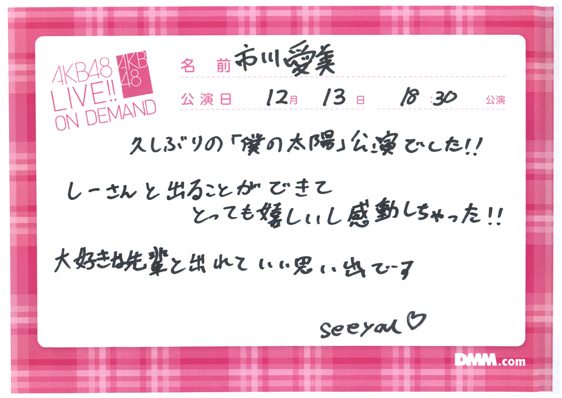 AKB48
LIVE!!
ON DEMAND
AKB
48
名前 市川愛美
公演日 12月 13日 18:30 公演
久しぶりの「僕の太陽」公演でした!!
しーさんと出ることができて
とっても嬉しいし感動しちゃった!!
大好きな先輩と出れていい思い出でーす
seeyou♡
DMM.com